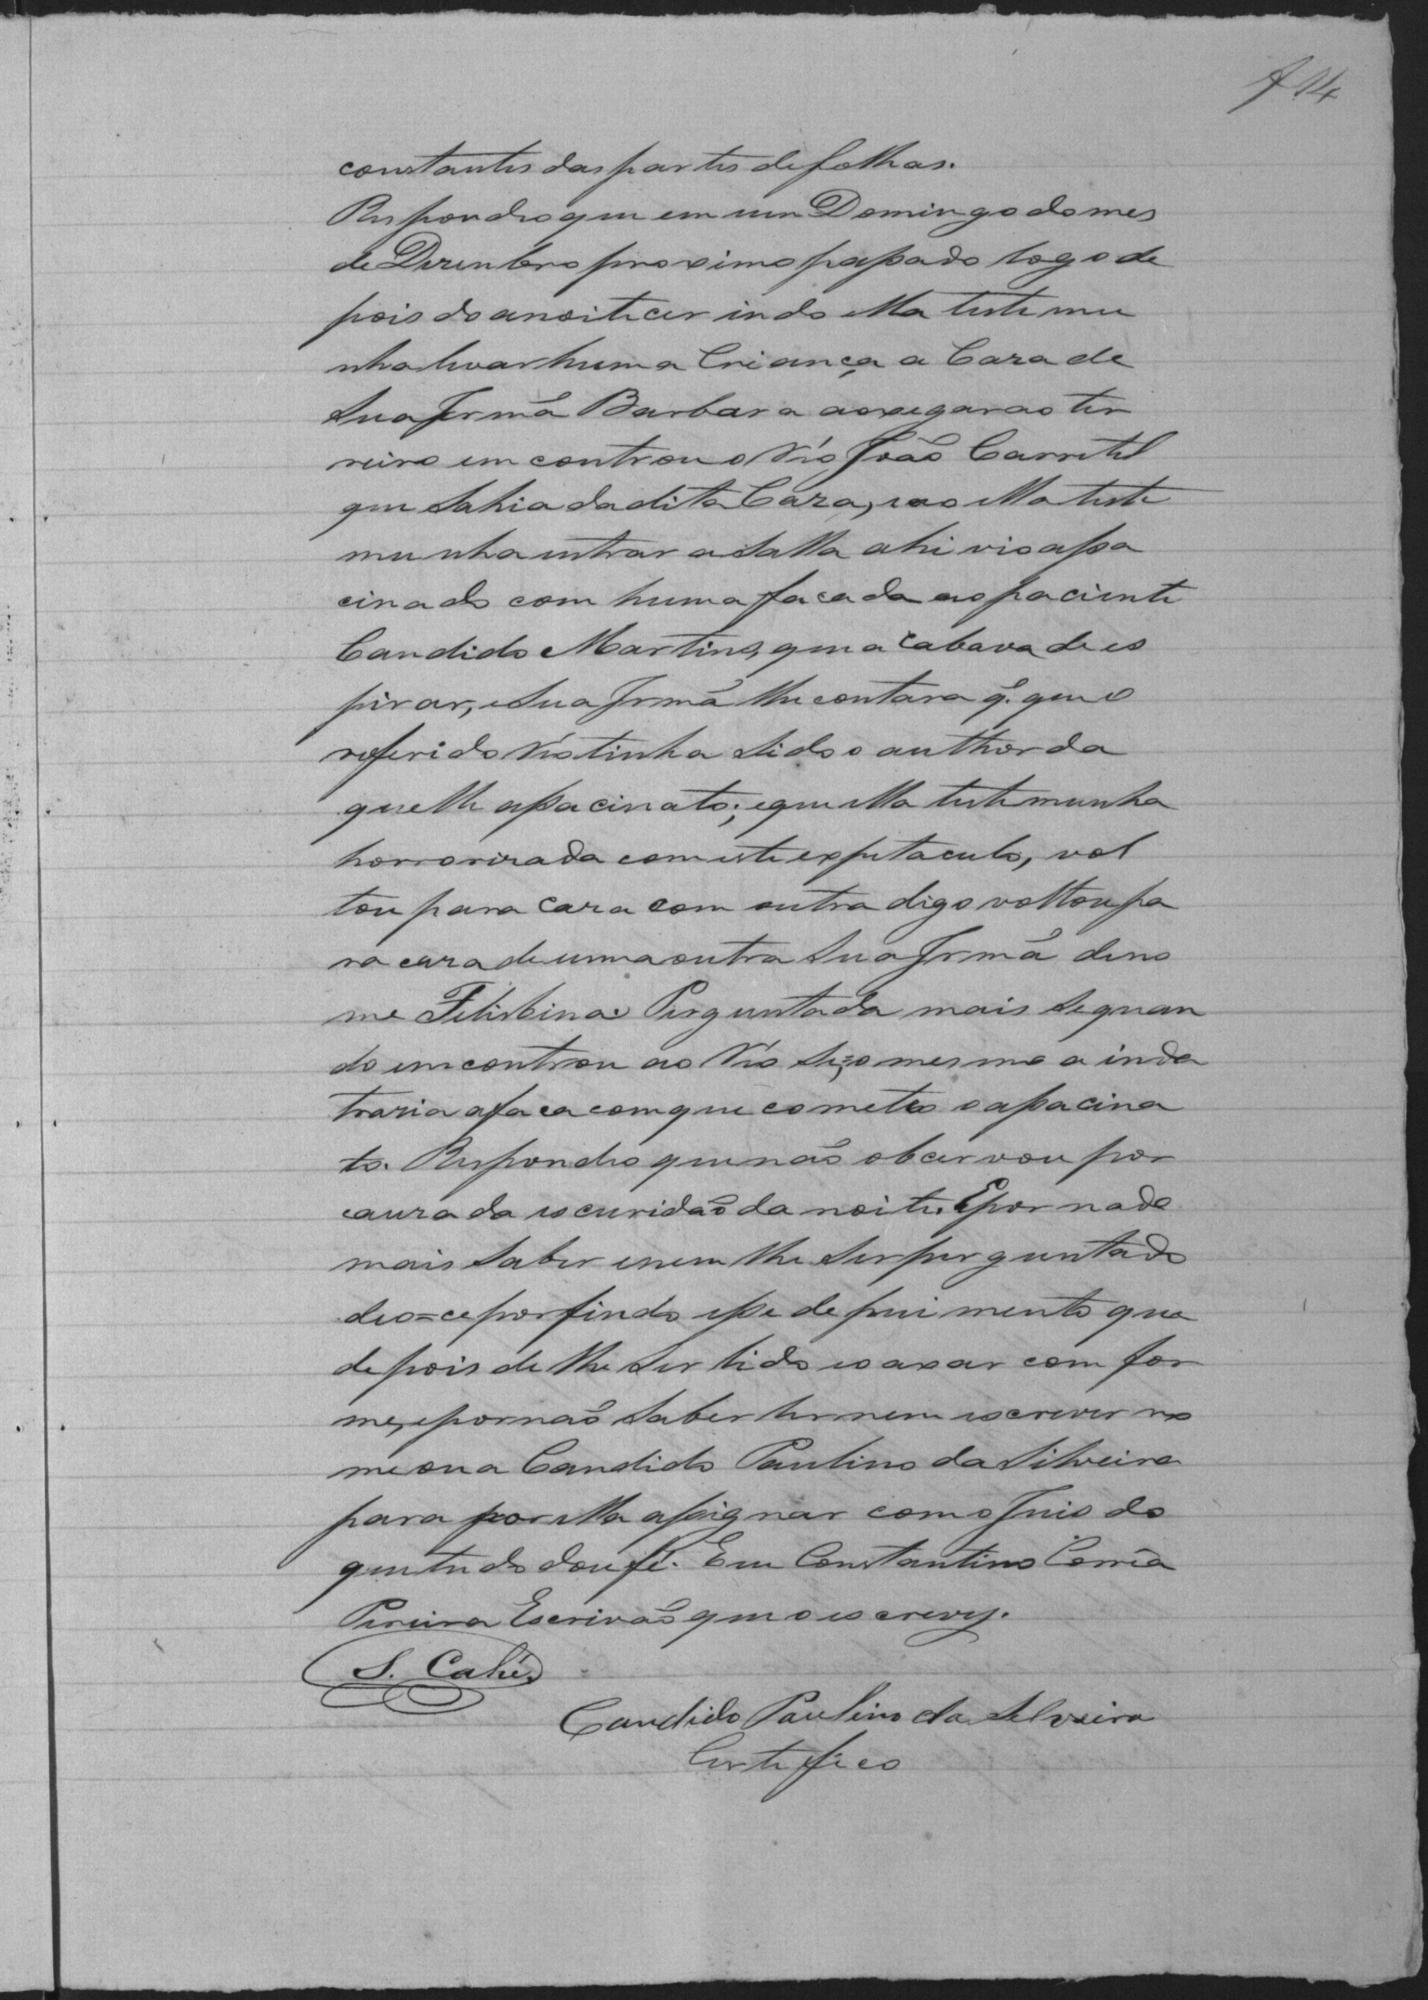 f 14
constantes das partes de folhas.
Respondeo que em um Domingo do mes
de Dezenbro proximo passado logo de
pois do anoitecer indo ella teste mu
nha levar huma Criança a Caza de
Sua Irmã Barbara ao xegar ao ter
reiro emcontrou o Réo João Carretel
que Sahia da dita Caza, e ao ella teste
munha entrar a Salla ahi vio assa
cinado com huma facada ao paciente
Candido Martins, que a cabava de es
pirar, e Sua Irmã lhe contara q. que o
referido Réo tinha Sido o author da
quelle assacinato; e que ella testemunha
horrorizada com este expetaculo, vol
tou para caza com outra digo voltou pa
ra caza de uma outra Sua Irmã de no
me Felisbina. Perguntada mais Se quan
do emcontrou ao Réo Se, o mesmo a inda
trazia a faca com que cometeo o assacina
to. Respondeo que não obcervou por
cauza da escuridão da noite. E por nada
mais Saber e nem lhe Ser perguntado
deo=ce por findo esse depuimento que
depois de lhe Ser lido e o axar com for
me, e por não Saber ler nem escrever no
meou a Candido Paulino da Silveira
para por ella assignar com o Juis do
que tudo dou fé. Eu Constantino Corrêa
Pereira Escrivão que o escrevy.
S. Calié
Candido Paulino da Silveira
Certefico